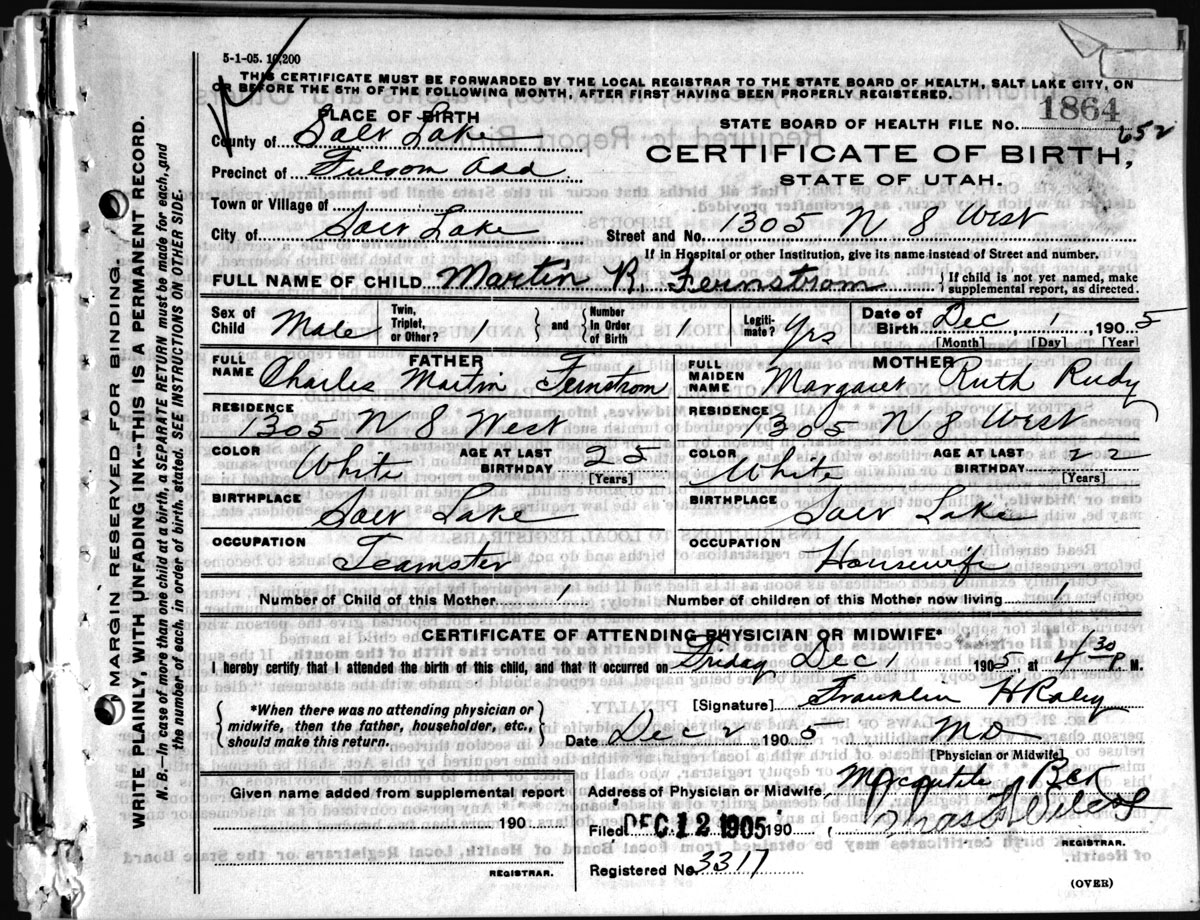 5-1-05. 10,200
THIS CERTIFICATE MUST BE FORWARDED BY THE LOCAL REGISTRAR TO THE STATE BOARD OF HEALTH, SALT LAKE CITY, ON
OR BEFORE THE 5TH OF THE FOLLOWING MONTH, AFTER FIRST HAVING BEEN PROPERLY REGISTERED.
PLACE OF BIRTH
STATE BOARD OF HEALTH FILE NO. 1864
652
County of Salt Lake
CERTIFICATE OF BIRTH,
Precinct of Fulsom Add
STATE OF UTAH.
Town or Village of
City of Salt Lake Street and No. 1305 N 8 West
If in Hospital or other Institution, give its name instead of Street and number.
FULL NAME OF CHILD Martin R. Fernstrom { If child is not yet named, make supplemental report, as directed.
Sex of Child Male Twin, Triplet, or Other? 1 } and { Number in Order of Birth 1 Legiti-mate? Yes Date of Birth Dec, 1, 1905
[Month] [Day] [Year]
FATHER MOTHER
FULL NAME Charles Martin Fernstrom FULL MAIDEN NAME Margaret Ruth Rudy
RESIDENCE 1305 N 8 West RESIDENCE 1305 N 8 West
COLOR White AGE AT LAST BIRTHDAY 25 [Years] COLOR White AGE AT LAST BIRTHDAY 22 [Years]
BIRTHPLACE Salt Lake BIRTHPLACE Salt Lake
OCCUPATION Teamster OCCUPATION Housewife
Number of Child of this Mother 1 Number of children of this Mother now living 1
CERTIFICATE OF ATTENDING PHYSICIAN OR MIDWIFE*
I hereby certify that I attended the birth of this child, and that it occurred on Friday Dec 1 1905, at 4 30 P. M.
{ *When there was no attending physician or midwife, then the father, householder, etc., should make this return. }
[Signature] Franklin H Raley
Date Dec 2 1905 MD
[Physician or Midwife]
Given name added from supplemental report
190
REGISTRAR.
Address of Physician or Midwife Mercantile Blk
Filed DEC 12 1905 190
REGISTRAR.
Registered No. 3317
(OVER)
MARGIN RESERVED FOR BINDING.
WRITE PLAINLY, WITH UNFADING INK--THIS IS A PERMANENT RECORD.
N. B.--In case of more than one child at a birth, a SEPARATE RETURN must be made for each, and
the number of each, in order of birth, stated. SEE INSTRUCTIONS ON OTHER SIDE.